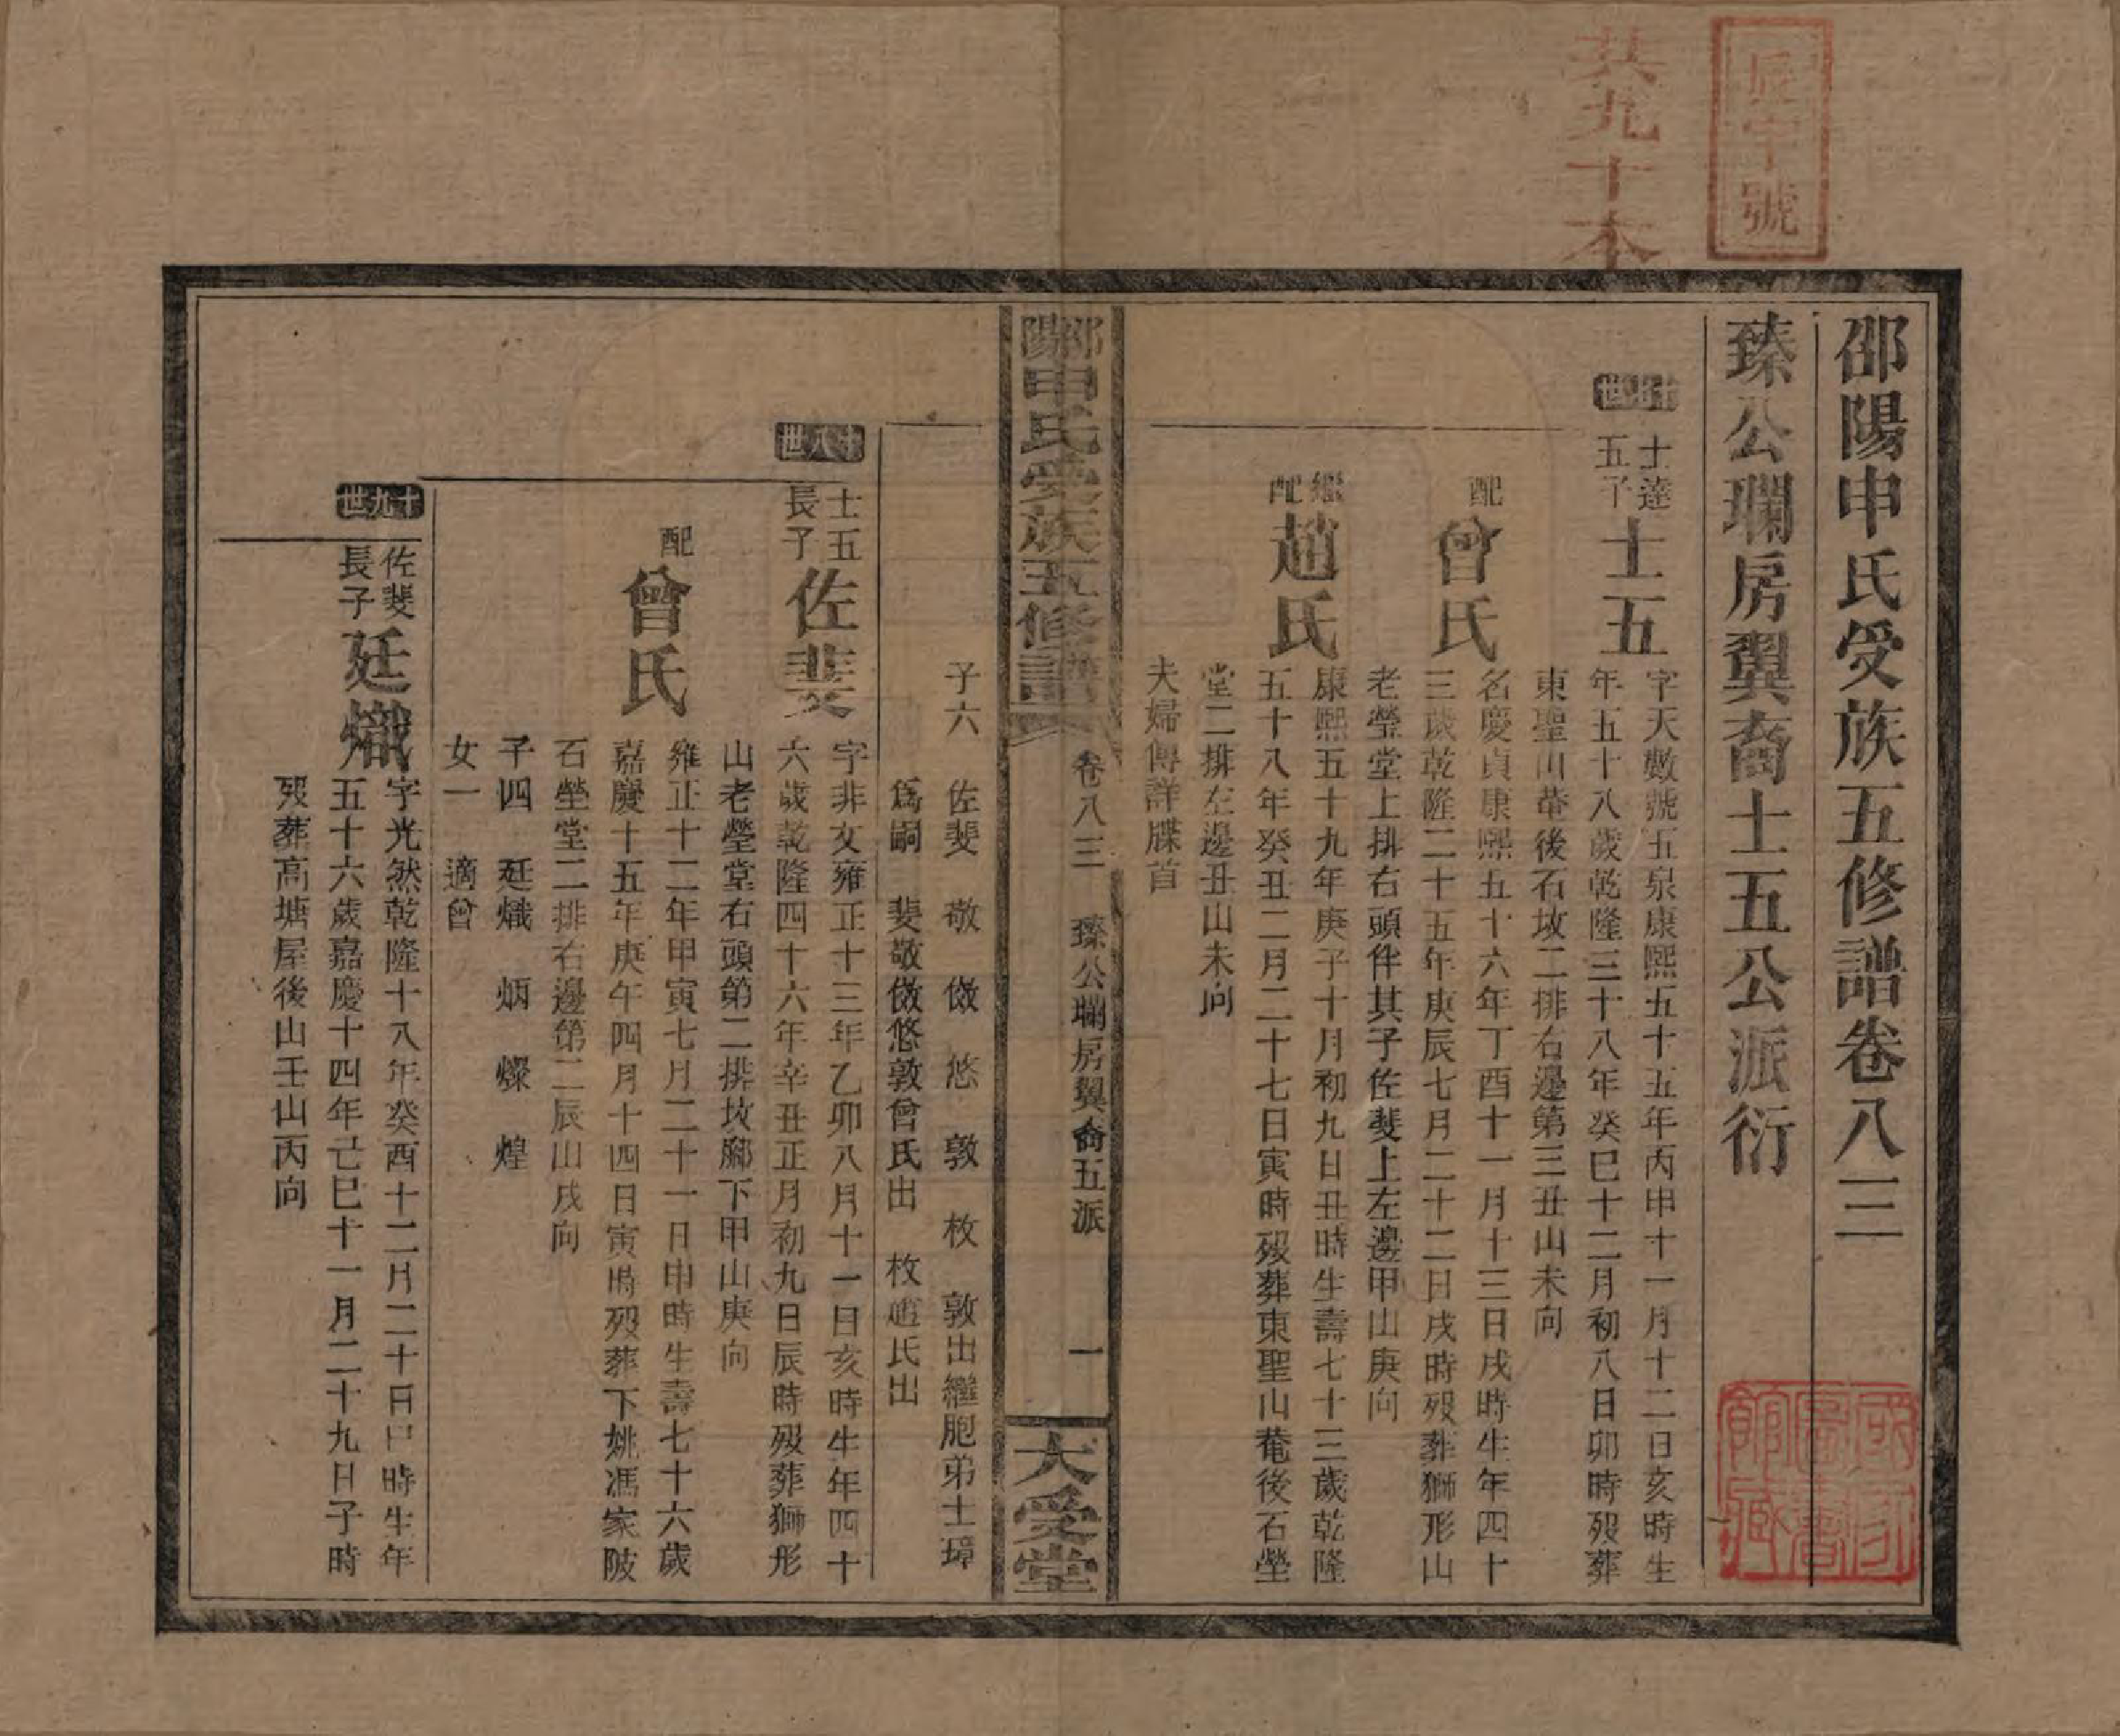 辰字號
共九十本
邵陽申氏受族五修譜卷八三
臻公瓓房翼裔士五公派衍
士達
五子
士五
字天數號五泉康熙五十五年丙申十一月十二日亥時生
年五十八歲乾隆三十八年癸巳十二月初八日卯時歿葬
東聖山菴後石坟二排右邊第三丑山未向
配
曾氏
名慶貞康熙五十六年丁酉十一月十三日戌時生年四十
三歲乾隆二十五年庚辰七月二十二日戌時歿葬獅形山
老塋堂上排右頭伴其子佐斐上左邊甲山庚向
繼
配
趙氏
康熙五十九年庚子十月初九日丑時生壽七十三歲乾隆
五十八年癸丑二月二十七日寅時歿葬東聖山菴後石塋
堂二排左邊丑山未向
夫婦傳詳牒首
邵陽申氏受族五修譜
卷八三
臻公瓓房翼裔五派
一
大受堂
子六 佐斐 敬 傚 悠 敦 枚 敦出繼胞弟士璋
爲嗣 斐敬傚悠敦曾氏出 枚趙氏出
十八世
士五
長子
佐斐
字非文雍正十三年乙卯八月十一日亥時生年四十
六歲乾隆四十六年辛丑正月初九日辰時歿葬獅形
山老塋堂右頭第二排坟腳下甲山庚向
配
曾氏
雍正十二年甲寅七月二十一日申時生壽七十六歲
嘉慶十五年庚午四月十四日寅時歿葬下姚馮家陂
石塋堂二排右邊第二辰山戌向
子四 廷熾 炳 燦 煌
女一 適曾
十九世
佐斐
長子
廷熾
字光然乾隆十八年癸酉十二月二十日巳時生年
五十六歲嘉慶十四年己巳十一月二十九日子時
歿葬高塘屋後山壬山丙向
國家圖書館藏